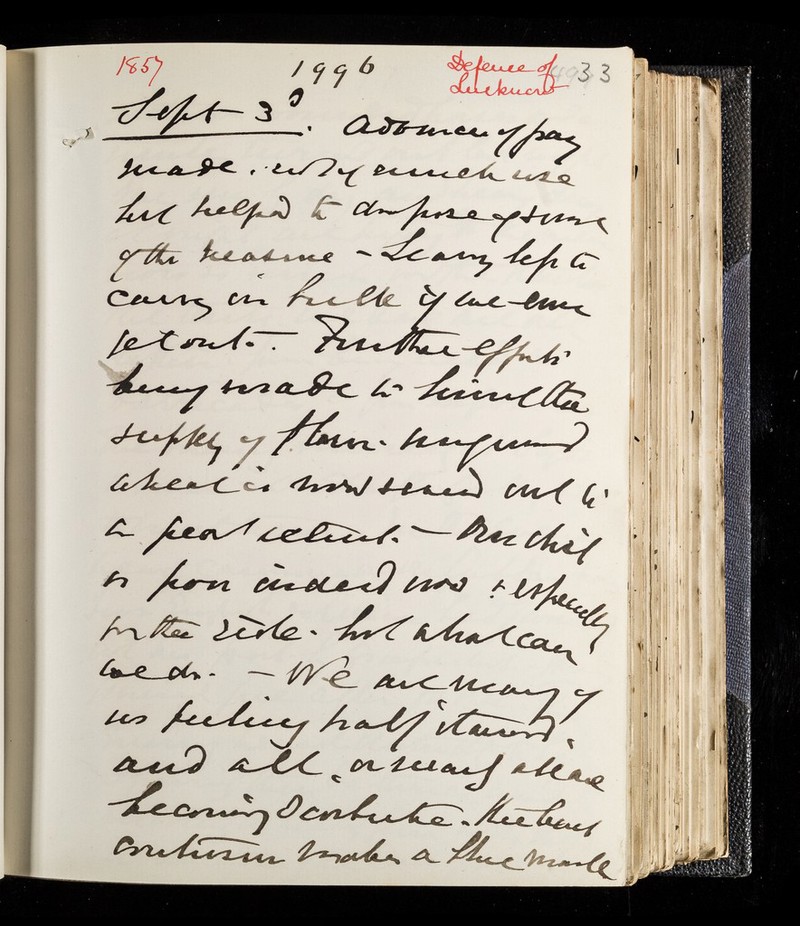 1857 1996 Defence of 33
Lucknow
Sept 3d. Advance of pay
made. not of much use
but helped to dispose of some
of the treasure - Leaving less to
carry in bulk if we ever
get out. - Further efforts
being made to limit the
supply of flour. unground
wheat is now served out to
a great extent. - Our diet
is poor indeed now & especially
for the sick. but what can
we do. - We are many of
us feeling half starved,
and all, or nearly all are
becoming Scorbutic. the least
contusion makes a blue mark